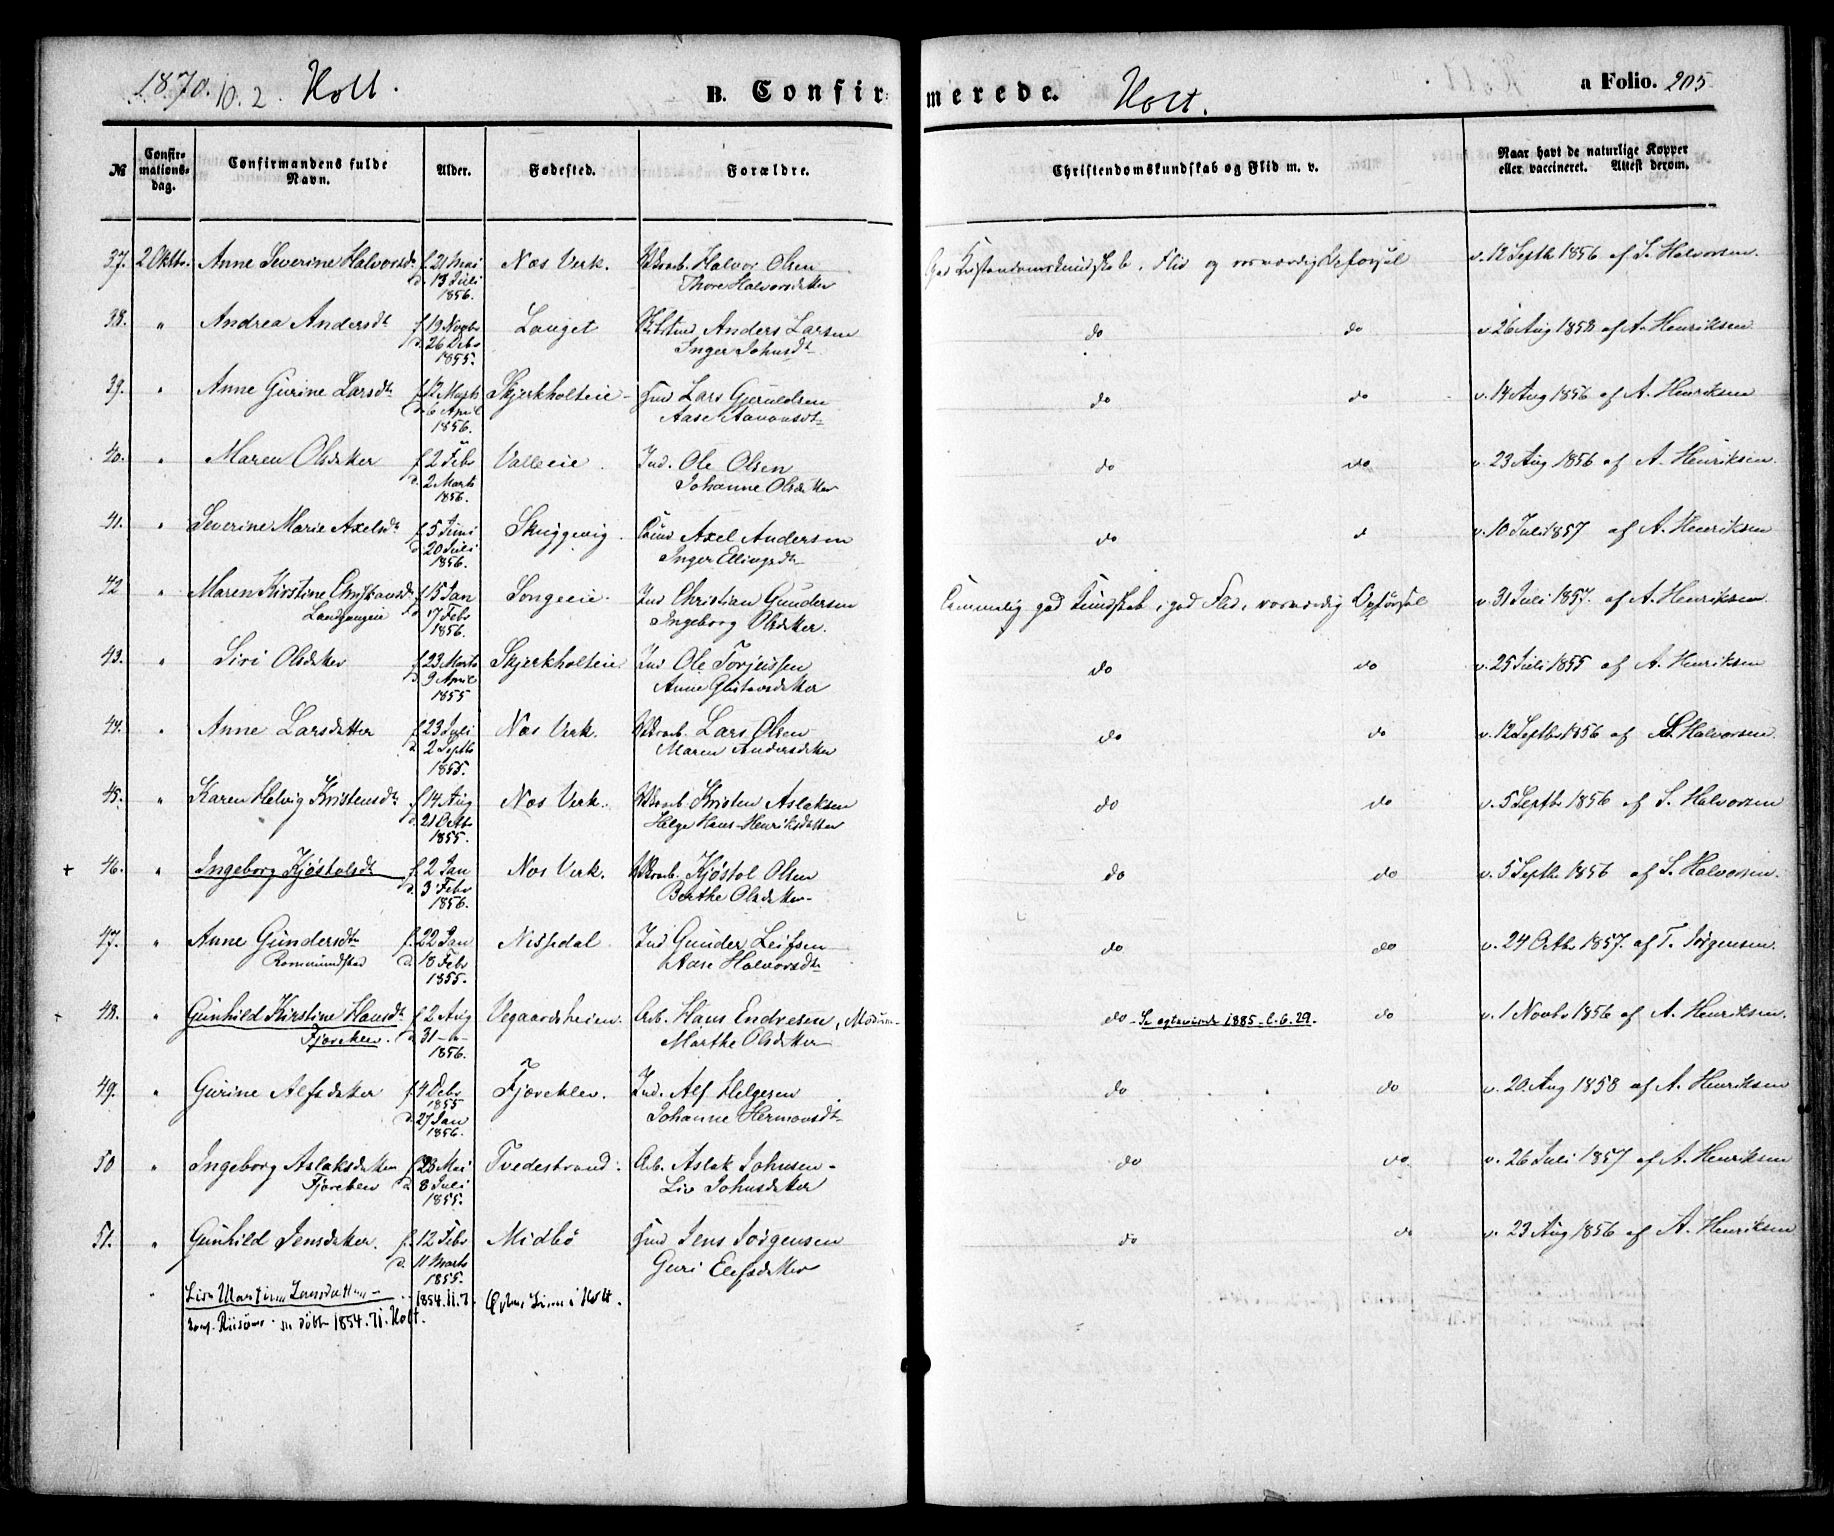 1870. 10.2. Holt. B. Confirmerede. Holt. a Folio. 205
№ Confirmationsdag. Confirmandens fulde Navn. Alder. Fødested. Forældre. Christendomskundskab og Flid m. v. Naar havt de naturlige Kopper eller vaccineret. Attest derom.
37. 2 Oktbr. Anne Severine Halvorsdr f. 21 Mai Næs Verk. Halvor Olsen God Kristendomskundskab, Flid og vorværdig Opførsel v. 12 Septbr 1856 af S. Halvorsen.
d. 13 Juli Thore Halvorsdatter
1856.
38. " Andrea Andersdt f. 19 Novbr Lauget Anders Larsen do do v. 26 Aug 1858 af A. Henriksen
d. 26 Debr Inger Johnsdt
1855.
39. " Anne Gurine Larsdtr f. 12 Marts Skjerkholteie Gmd Lars Gjeruldsen do do v. 14 Aug 1856 af A. Henriksen
d. 6 April Aase Aanonsdtr
1856.
40. " Maren Olsdatter f. 2 Febr Valleeie. Ind. Ole Olsen do do v. 23 Aug 1856 af A. Henriksen.
d. 2 Marts Johanne Olsdatter
1856.
41. " Severine Marie Axelsdt f. 5 Juni Skuggevig. Axel Andersen do d v. 10 Juli 1857 af A. Henriksen
d. 20 Juli Inger Ellingsdtr
1856.
42 " Maren Kirstine Christiansdt f. 15 Jan Songeeie. Ind Christian Gundersen Temmelig god Kundskab, god Flid, vorværdig Opførsel v. 31 Juli 1857. af A. Henriksen.
Landsangeie d. 17 Febr Ingeborg Olsdatter.
1856.
43. " Siri Olsdatter f. 23 Marts Skjerkholteie. Ind Ole Torjeussen do do v. 25 Juli 1855 af A. Henriksen
d. 9 April Anne Gustavsdatter
1855
44. " Anne Larsdatter f. 23 Juli Næs Verk. Lars Olsen do do v. 12 Septbr 1856 af S. Halvorsen.
d. 2 Septb Maren Andersdatter
1855.
45. " Karen Helvig Kristensdtr f. 14 Aug Næs Verk. Kristen Aslaksen do do v. 5 Septbr 1856 af S. Halvorsen
d. 21 Octbr Helge Hans-Henriksdatter
1855.
+ 46. " Ingeborg Kjøstolsdt f. 2 Jan Næs Verk. Kjøstol Olsen do do v. 5 Septbr 1856 af S. Halvorsen.
d. 3 Febr Berthe Olsdatter
1856.
47. " Anne Gundersdtr f. 22 Jan Nissedal. Ind Gunder Leifsen do do v. 24 Octbr 1857. af T. Jørgensen.
d. 18 Febr Aase Halvorsdtr
1855.
+ 48. " Gunhild Kirstine Hansdt f. 2 Aug Vegaardsheien. Arb. Hans Endresen, do - Se egteviede 1885-l.6.29. do v. 1 Novbr 1856 af A. Henriksen.
Fjæreklev. d. 31 -"- Marthe Olsdatter
1856.
49. " Gurine Alfsdatter f. 4 Debr Fjæreklev. Ind. Alf Helgesen do do v. 20 Aug 1858 af A. Henriksen
1855
d. 27 Jan Johanne Hermonsdt
1856.
50 " Ingeborg Aslaksdatter f. 23 Mai Tvedestrand. Arb. Aslak Johnsen - do do v. 26 Juli 1857 af A. Henriksen
Fjæreklev d. 8 Juli Liv Johnsdatter
1855.
51. " Gunhild Jensdatter. f. 12 Febr Midbö Gmd Jens Jörgensen do do v. 23 Aug 1856 af A. Henriksen
d. 11 Marts Guri Elefsdatter
1855.
" 1854.11.7. i Holt.
døbte 1854.71. Holt.